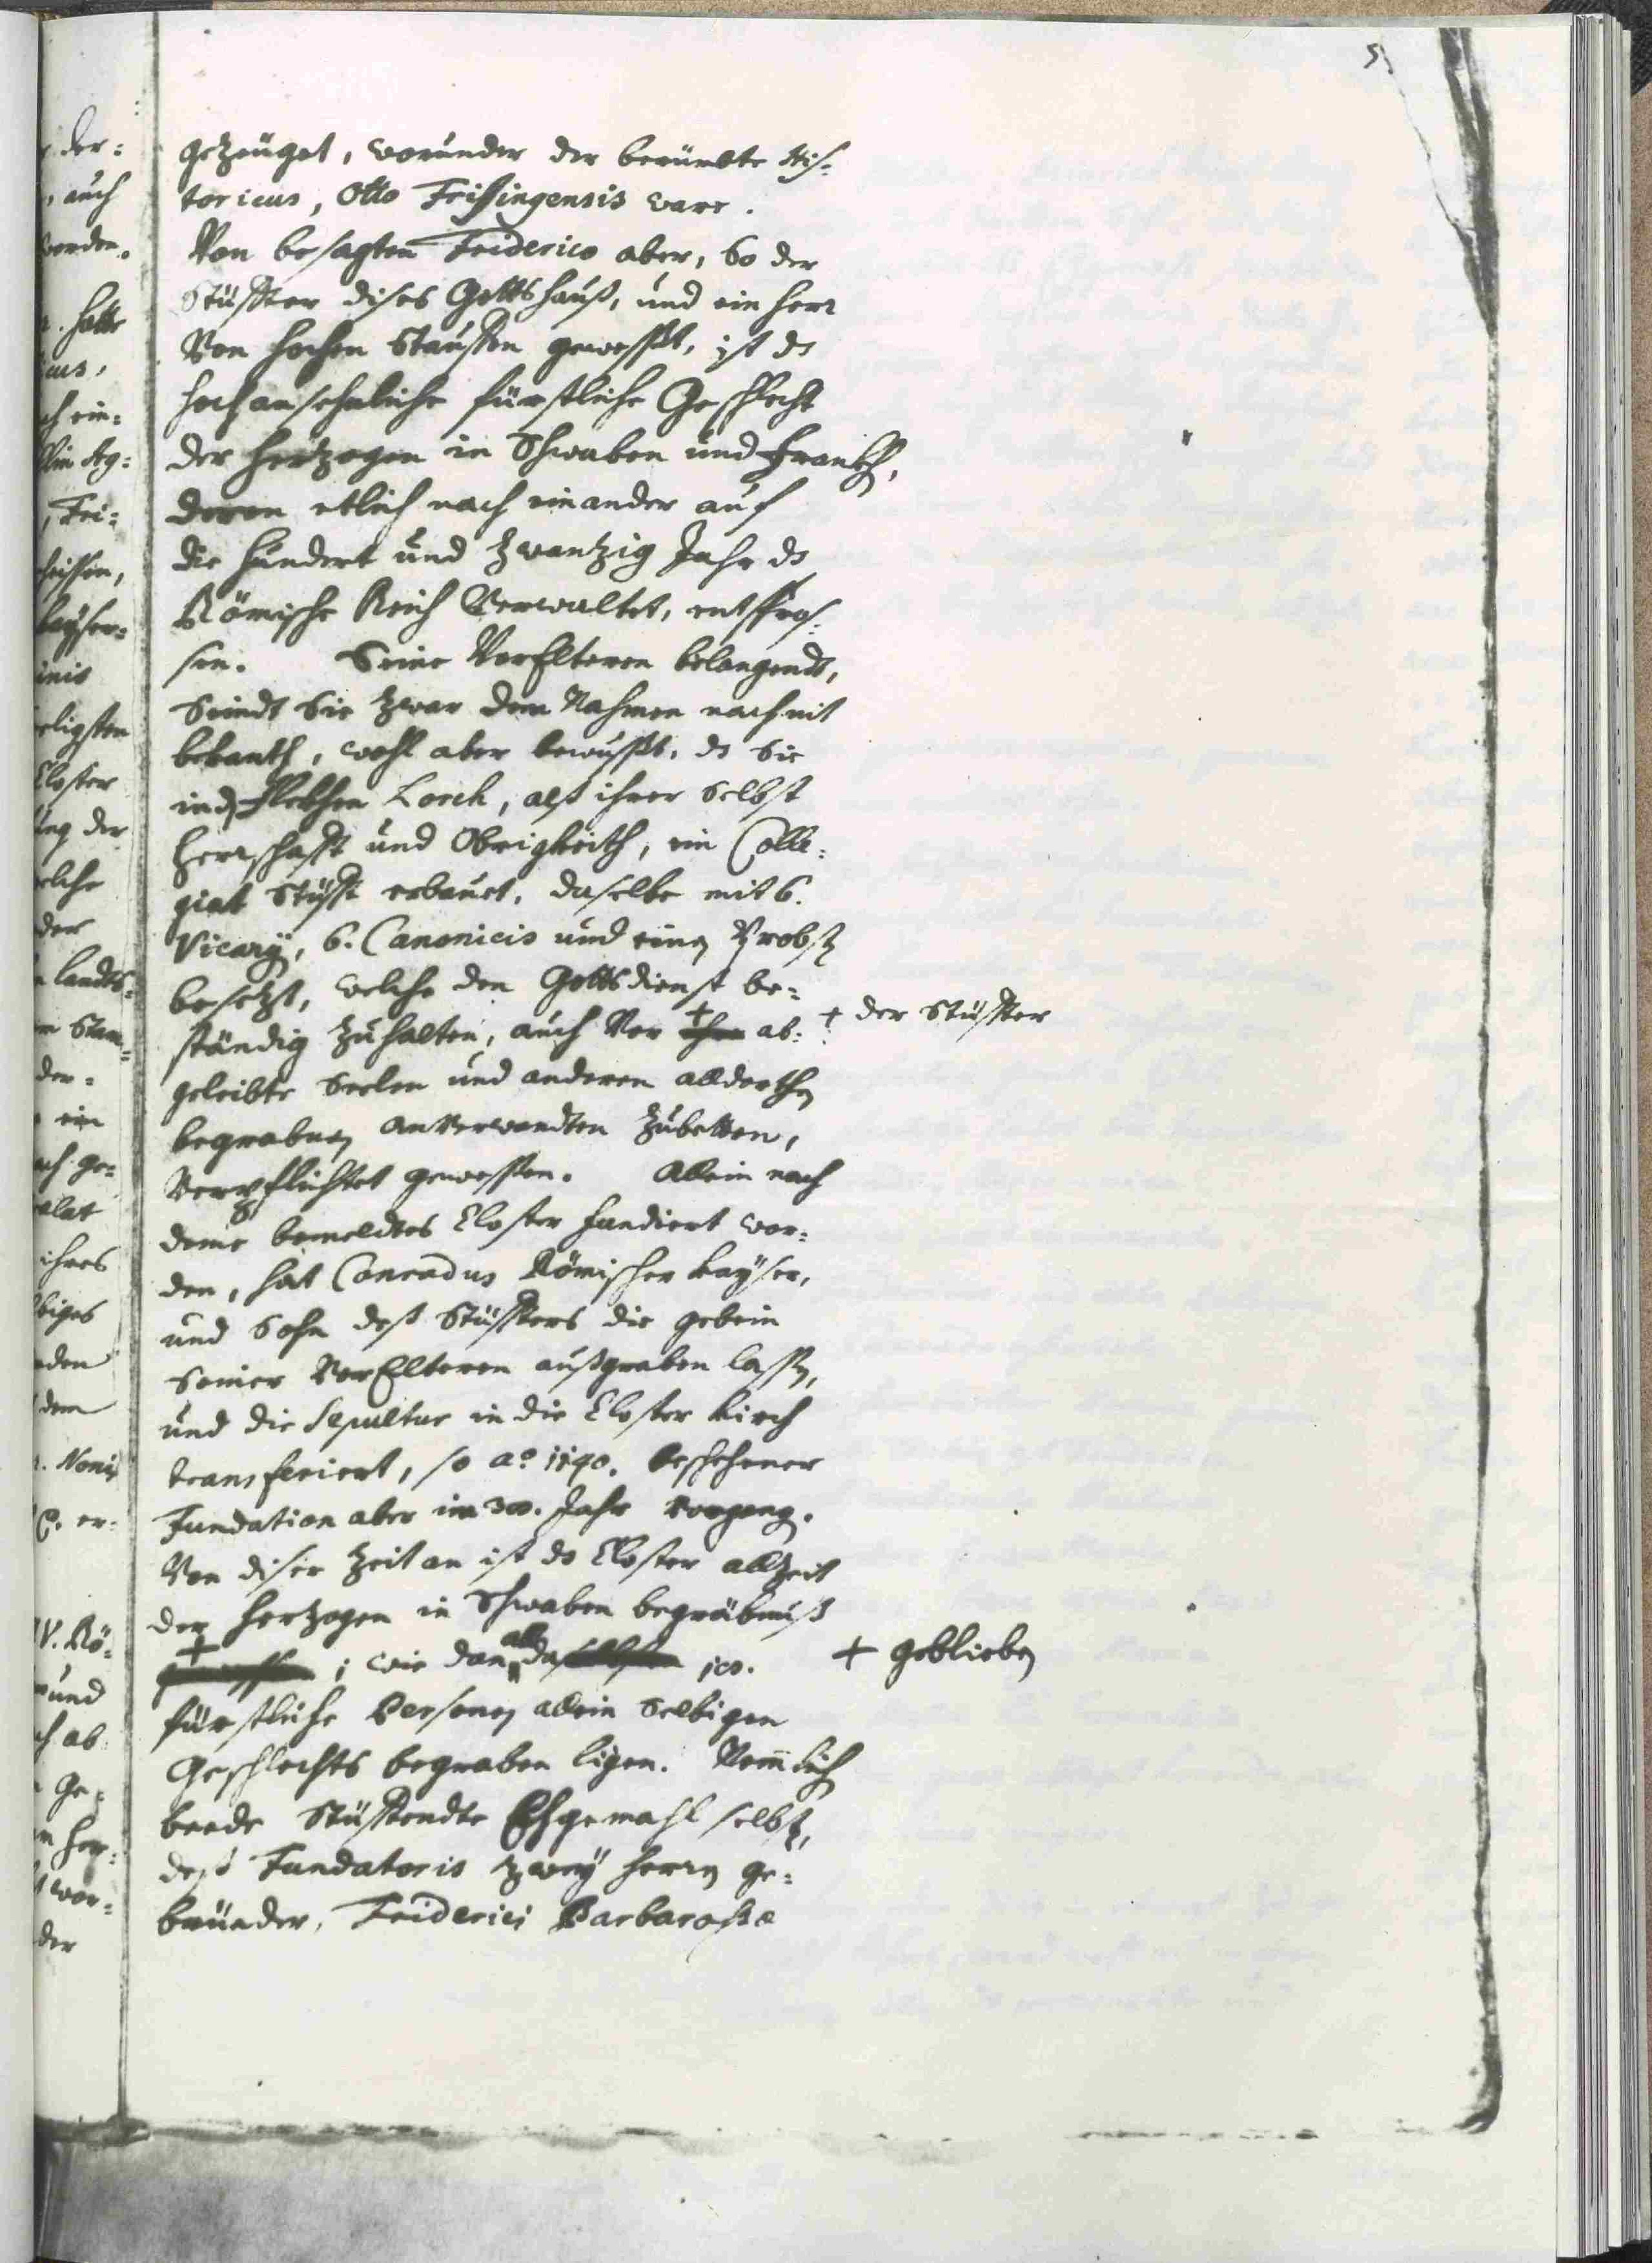 5.
getzeüget, worunder der berümbte His-
toricus, Otto Frisingensis ware.
Von besagten Friderico aber, so der
Stüffter dises Gottshauß, und ein Herr
Von hochen Stauffen gewesst, ist ds
hochansehnliche fürstliche Geschlecht
der Hertzogen in Schwaben und Franckh,
deren etlich nach einander auf
die hundert und zwantzig Jahr ds
Römische Reich Verwaltet, entspros-
sen. Seine VorElteren belangendt,
Seindt Sie zwar dem Nahmen nach nit
bekanth, wohl aber bewusst, ds Sie
in dz Flekhen Lorch, alß ihrer Selbst
Herrschafft und Obrigkeith, ein Colle-
giat Stüfft erbauet, daselbe mit 6.
Vicarÿ, 6. Canonicis und einen Probst
besetzt, welche den Gottsdienst be-
ständig zuhalten, auch Vor + ihre ab- + der Stüffter
geleibte Seelen und anderen alldorthen
begrabnen anverwandten zubetten,
Verpflichtet gewessen. Allein nach
deme bemeldtes Closter fundiert wor-
den, hat Conradus Römischer Kaÿser,
und Sohn deß Stüffters die gebein
Seiner VorElteren außgraben lassen,
und die Sepultur in die Closter Kirch
transferiert, so aº 1140. beschehener
Fundation aber im 38. Jahr vorgeng.
Von diser Zeit an ist ds Closter allzeit
der Hertzogen in Schwaben begräbnuß
+ ; wie dan alda 18. + geblieben
fürstliche Personen allein Selbigen
Geschlechts begraben ligen. Nemlich
beede Stüfftendte Ehgemahl selbst,
deß Fundatoris zweÿ Herrn ge-
brüeder, Friderici Barbarossæ
der-
auch
worden.
hatte
ein-
Ag-
Fri-
Kaÿser-
eligsten
Closter
der
landts-
der-
ein
ge-
ihres
dem
Noni
er-
IV. Rö-
und
ab
ge-
her-
wor-
der